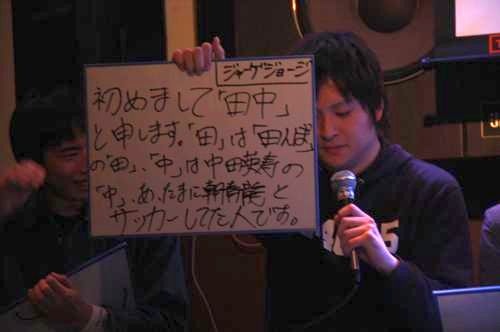 ジャーゲジョージ
初めまして「田中」
と申します。「田」は「田んぼ」
の「田」、「中」は中田英寿の
「中」、あ、たまに と
サッカーしてた人です。
5